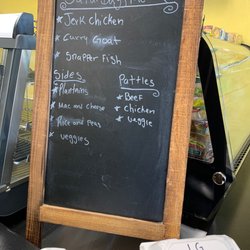 * Jerk Chicken
* Curry Goat
* Snapper Fish
Sides
* Plantains
* Mac and Cheese
* Rice and Peas
* Veggies
Patties
* Beef
* Chicken
* Veggie